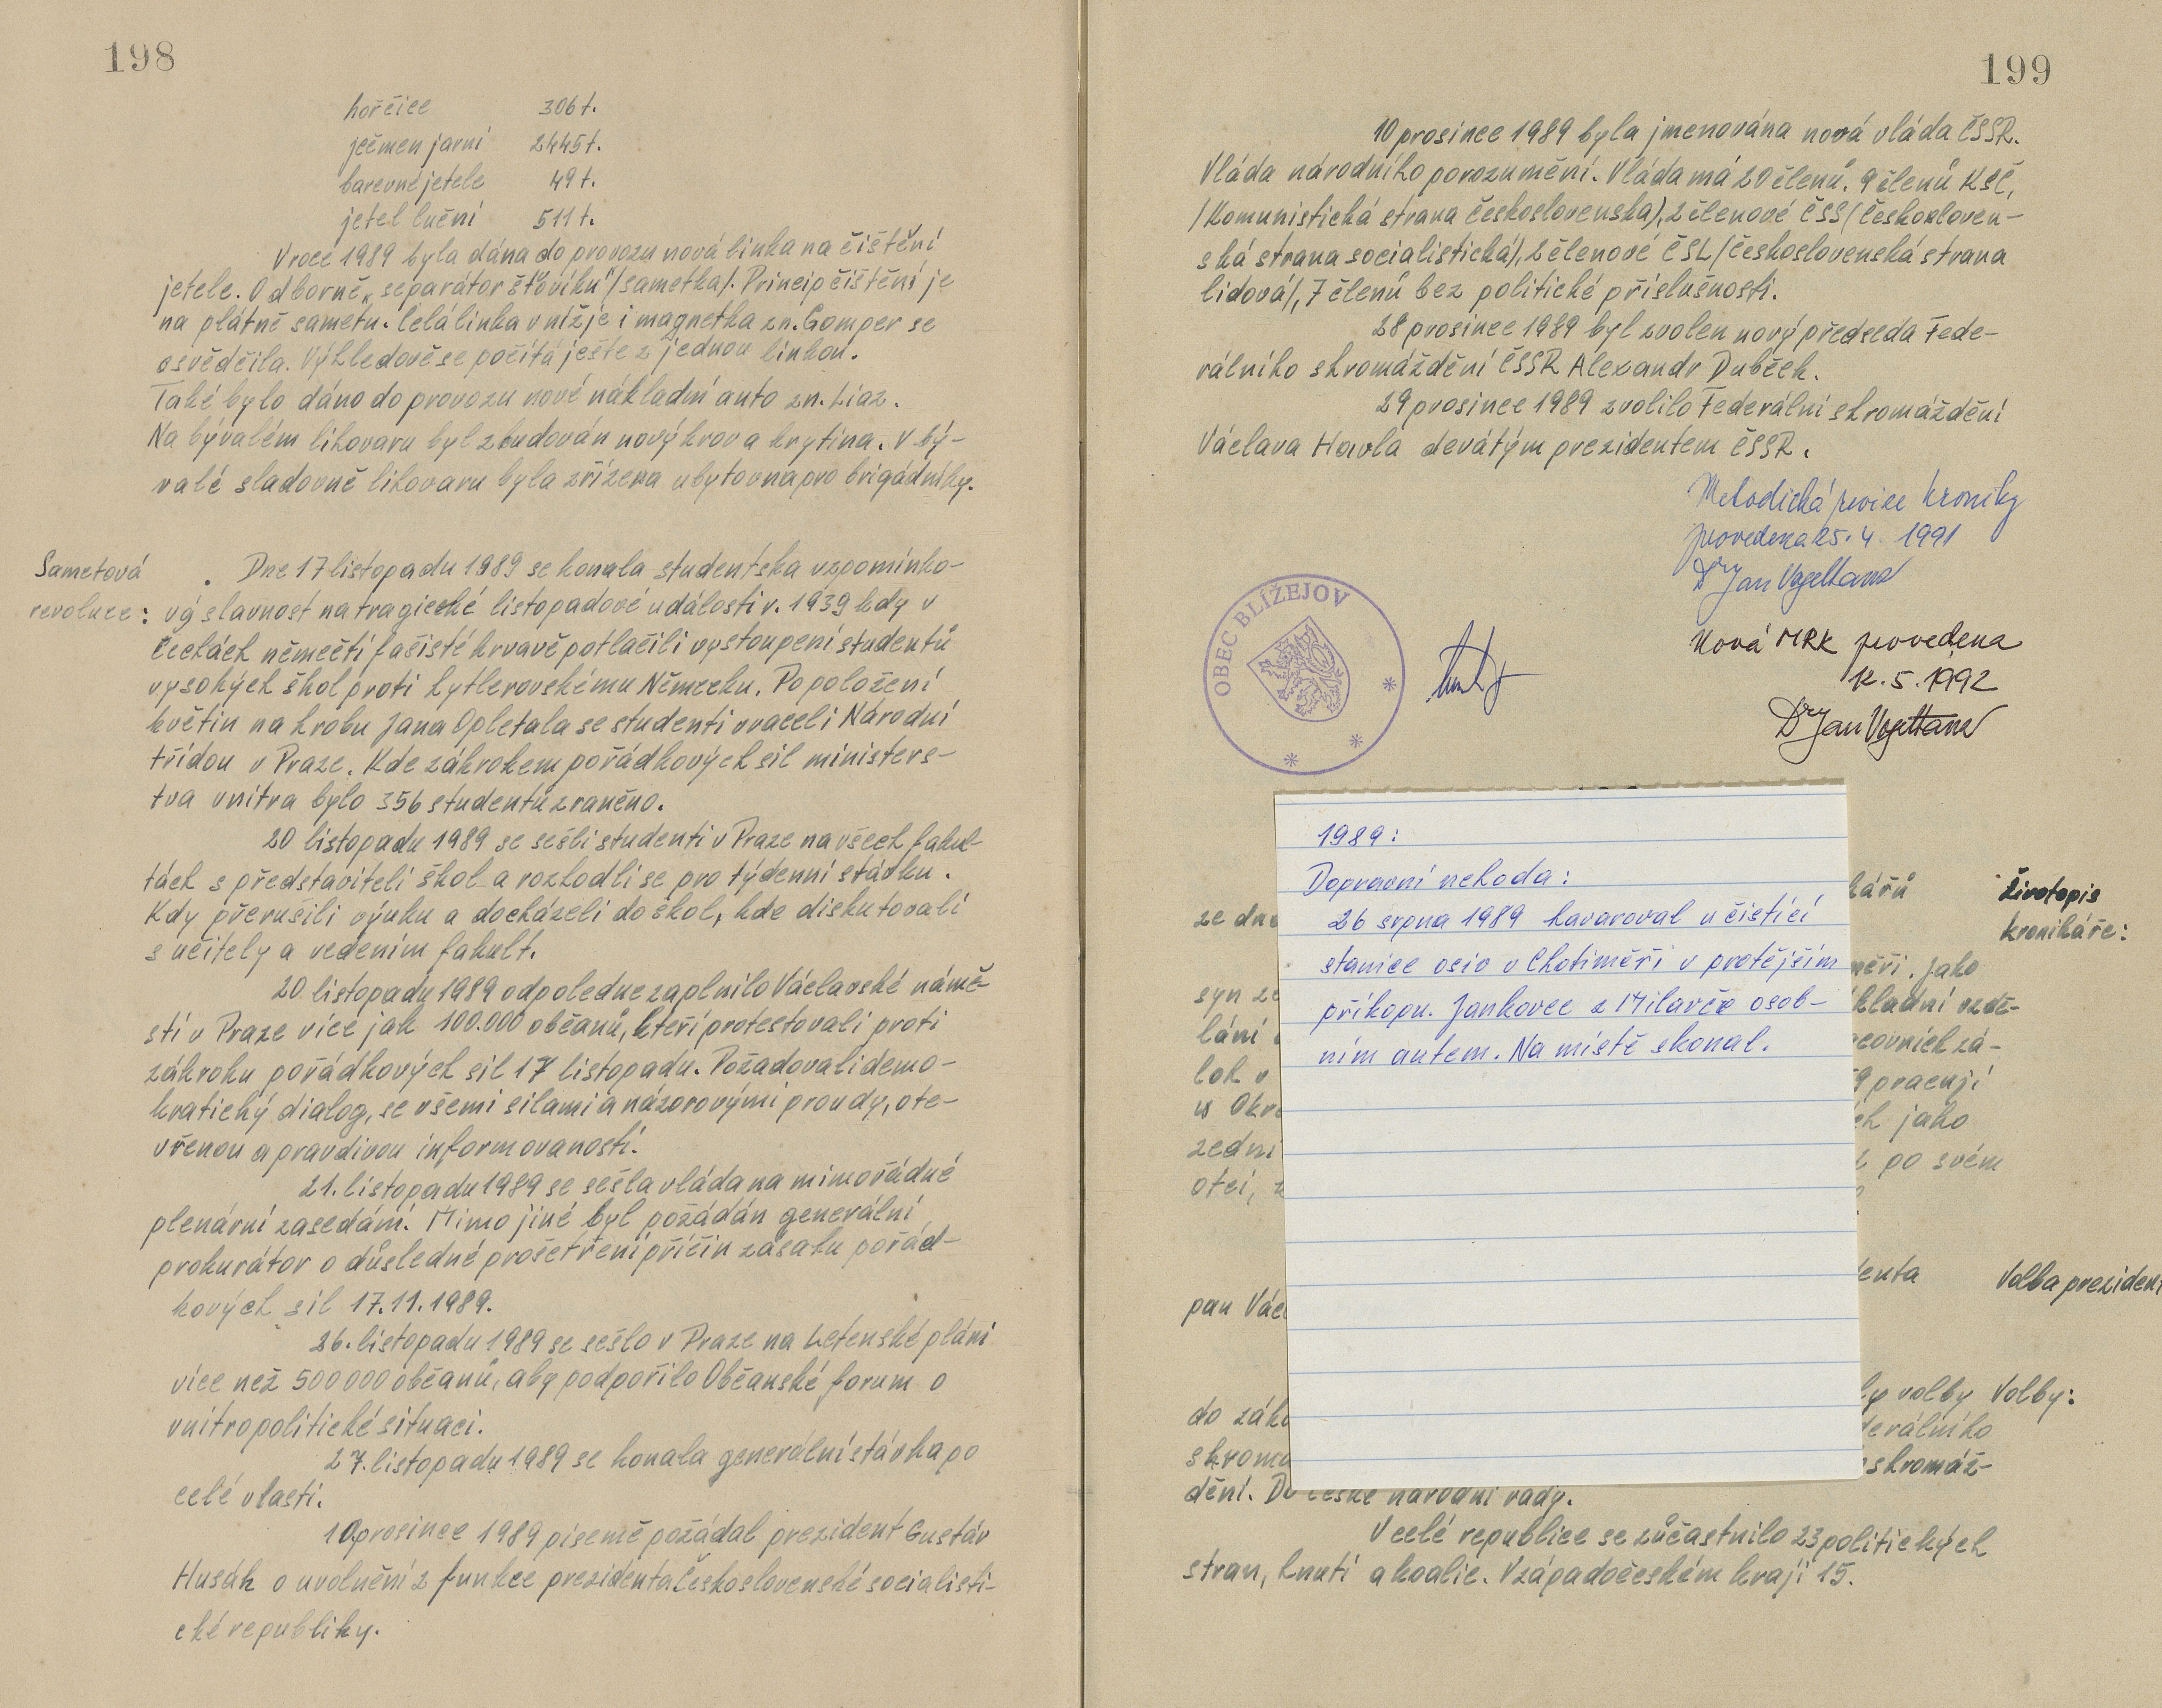 198
hořčice 306 t.
ječmen jarní 2445 t.
barevné jetele 49 t.
jetel luční 511 t.
V roce 1989 byla dána do provozu nová linka na čištění
jetele. Odborně „separátor šťovíku"/sametka/. Princip čištění je
na plátně sametu. Celá linka v níž je i magnetka zn. Gomper se
osvědčila. Výhledově se počítá ješte z jednou linkou.
Také bylo dáno do provozu nové nákladní auto zn. Liaz.
Na bývalém lihovaru byl zbudován nový krov a krytina. V bý-
valé sladovně lihovaru byla zřízena ubytovna pro brigádníky.
Sametová
revoluce:
Dne 17 listopadu 1989 se konala studentska vzpomínko-
vá slavnost na tragické listopadové události r. 1939 kdy v
Čechách němečtí fašisté krvavě potlačili vystoupení studentů
vysokých škol proti hytlerovskému Německu. Po položení
květin na hrobu Jana Opletala se studenti vraceli Národní
třídou v Praze. Kde zákrokem pořádkových sil ministers-
tva vnitra bylo 356 studentů zraněno.
20 listopadu 1989 se sešli studenti v Praze na všech fakul-
tách s představiteli škol a rozhodli se pro týdenní stávku.
Kdy přerušili výuku a docházeli do škol, kde diskutovali
s učitely a vedením fakult.
20 listopadu 1989 odpoledne zaplnilo Václavské námě-
stí v Praze více jak 100.000 občanů, kteří protestovali proti
zákroku pořádkových sil 17 listopadu. Požadovali demo-
kratický dialog, se všemi silami a názorovými proudy, ote-
vřenou a pravdivou informovaností.
21. listopadu 1989 se sešla vláda na mimořádné
plenární zasedání. Mimo jiné byl požádán generální
prokurátor o důsledné prošetření příčin zásahu pořád-
kových sil 17.11.1989.
26. listopadu 1989 se sešlo v Praze na Letenské pláni
více než 500 000 občanů, aby podpořilo Občanské forum o
vnitropolitické situaci.
27. listopadu 1989 se konala generální stávka po
celé vlasti.
10 prosince 1989 písemě požádal prezident Gustáv
Husák o uvolnění z funkce prezidenta Československé socialisti-
cké republiky.
199
10 prosince 1989 byla jmenována nová vláda ČSSR.
Vláda národního porozumění. Vláda má 20 členů. 9 členů KSČ,
/Komunistická strana československa/, 2 členové ČSS /Českosloven-
ská strana socialistická/, 2 členové ČSL /Československá strana
lidová/, 7 členů bez politické příslušnosti.
28 prosince 1989 byl zvolen nový předseda Fede-
rálního shromáždění ČSSR Alexandr Dubček.
29 prosince 1989 zvolilo Federální shromáždění
Václava Havla devátým prezidentem ČSSR.
Metodická revize kroniky
provedena 25. 4. 1991
Dr Jan Vogeltanz
OBEC BLÍŽEJOV
Nová MRK provedena
12. 5. 1992
Dr Jan Vogeltanz
1989:
Dopravní nehoda:
26 srpna 1989 havaroval u čistící
stanice osiv v Chotiměři v protějším
příkopu. Jankovec z Milavče osob-
ním autem. Na místě skonal.
kářů Životopis
ze dne kronikáře:
měři. Jako
syn ze kladní vzdě-
lání
lok v 9 pracují
v Okre ch jako
zední po svém
otci,
denta Volba prezident
pan Václ
volby Volby:
do zákl derálního
shromá shromáž-
dění. Do České národní rady.
V celé republice se zůčastnilo 23 politických
stran, hnutí a koalic. V západočeském kraji 15.